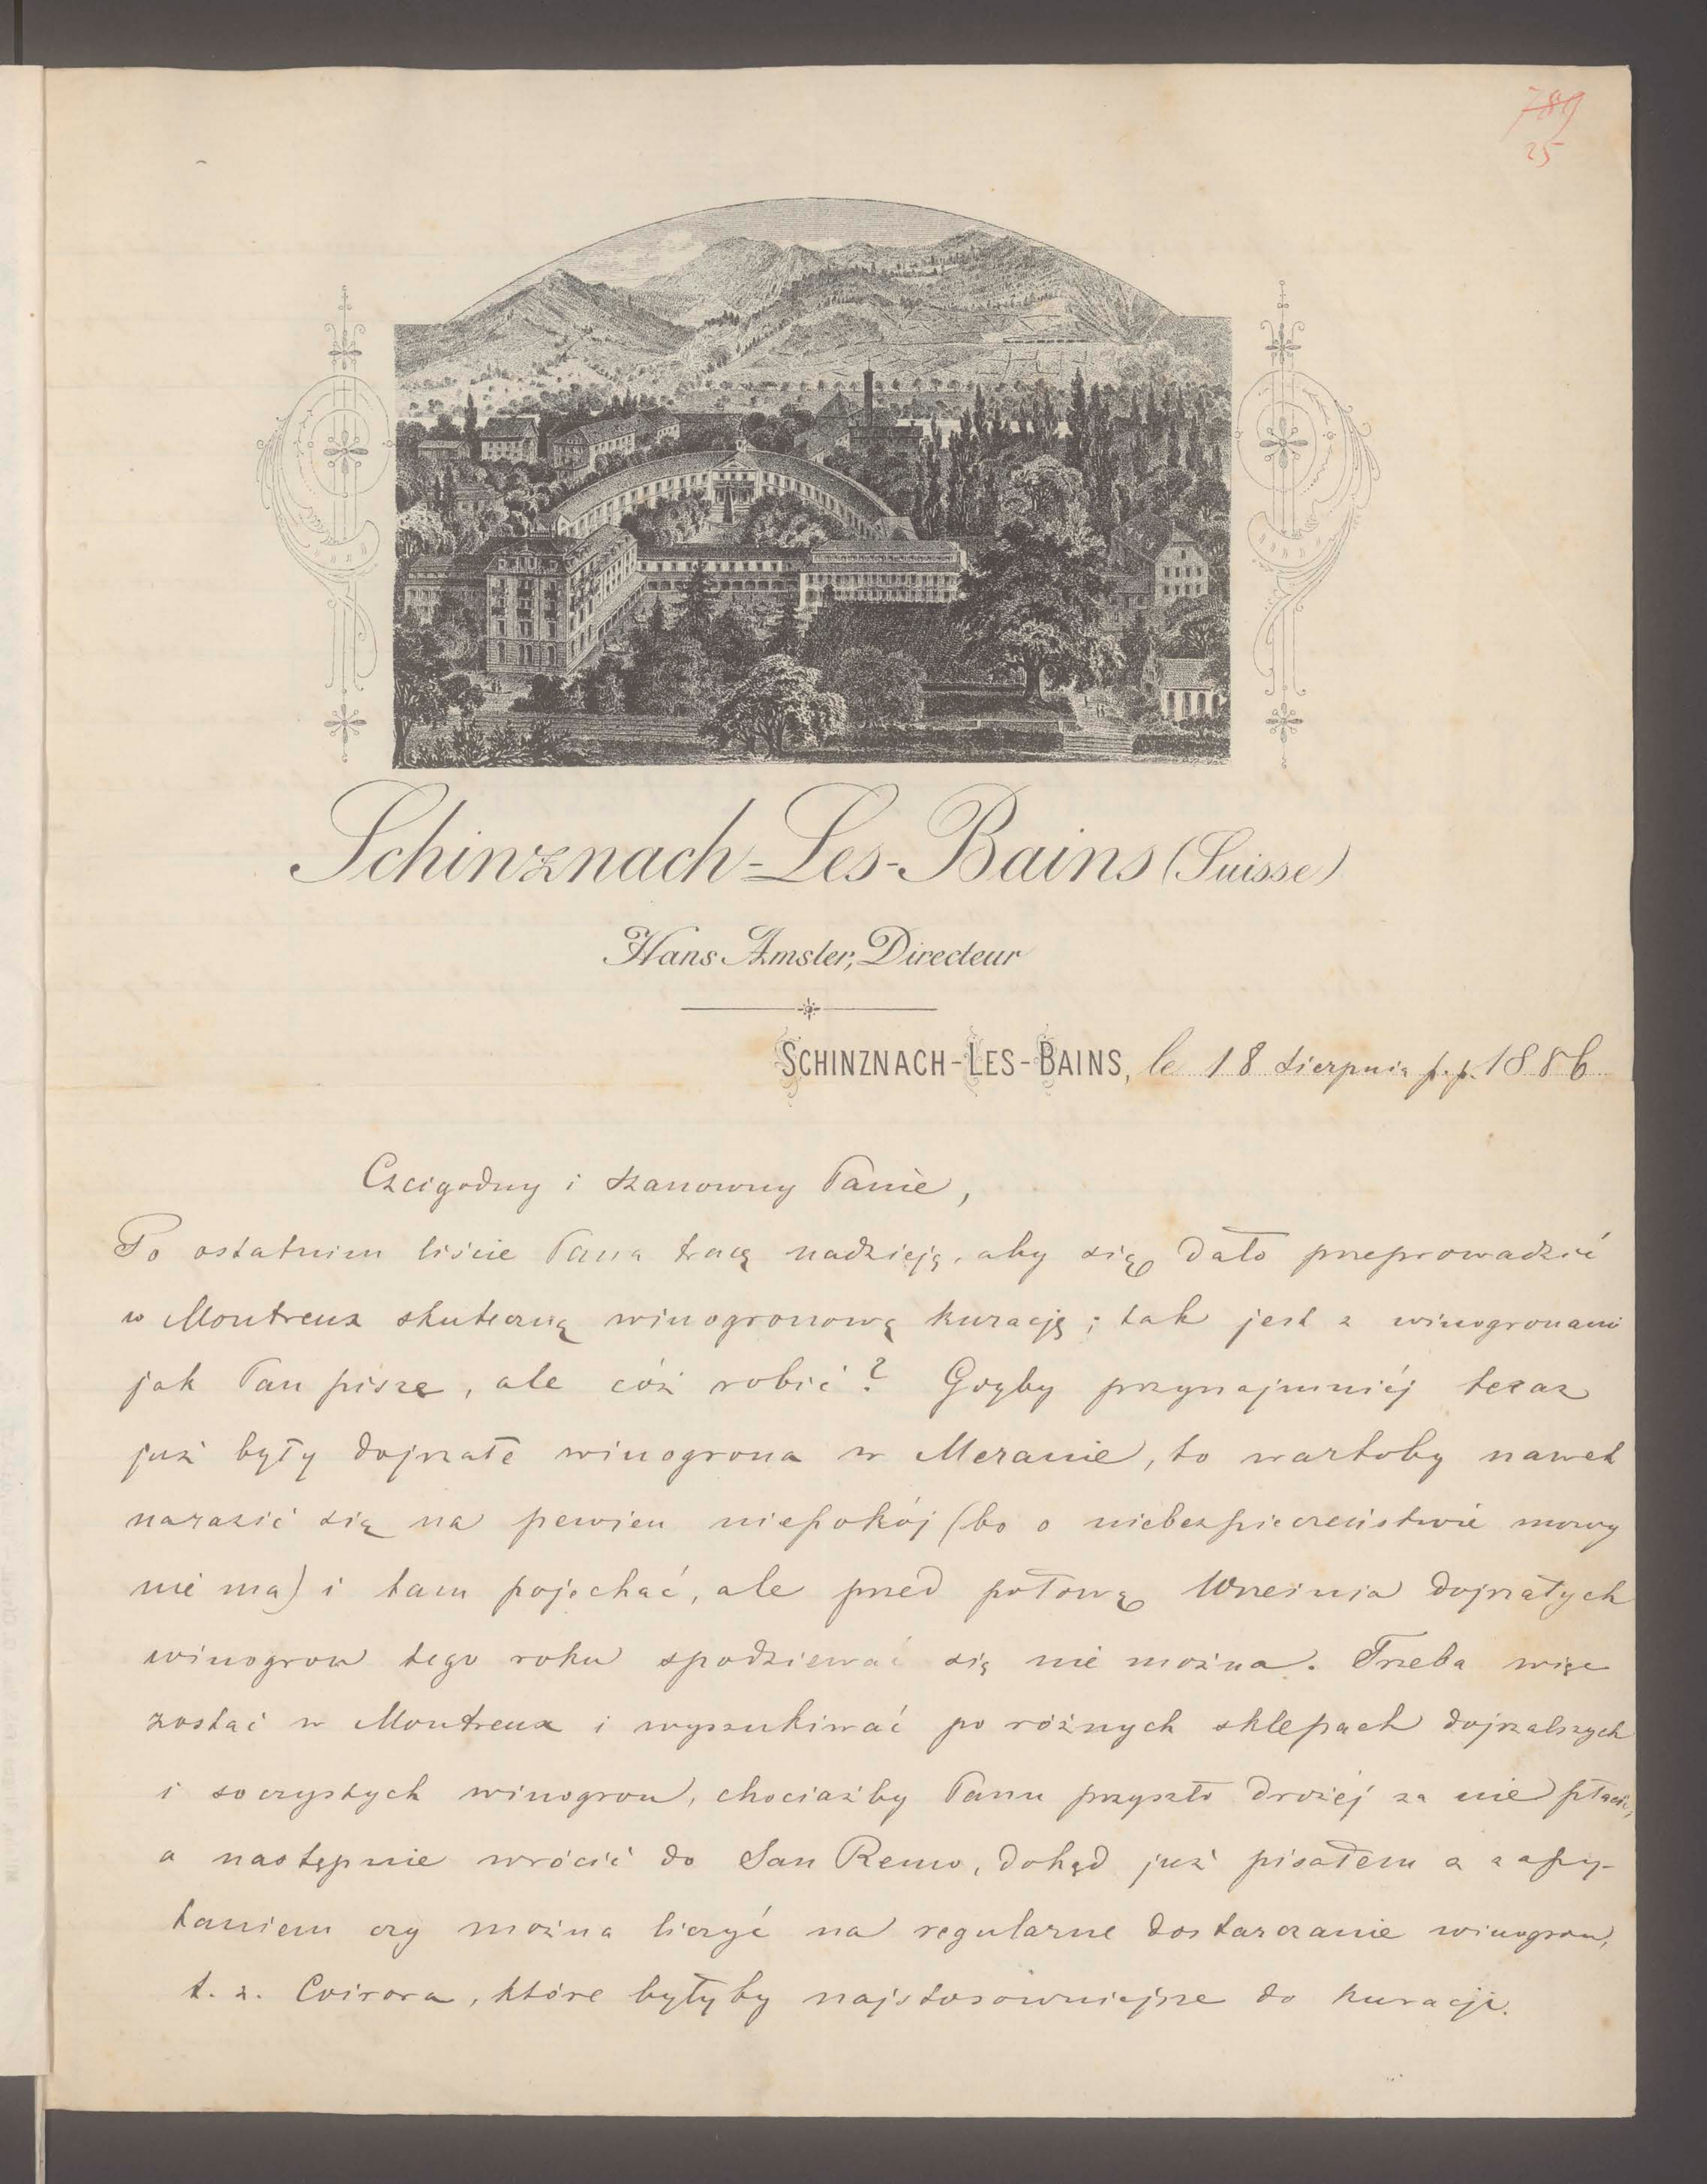 789
25
Schinznach-Les-Bains (Suisse)
Hans Amsler, Directeur
SCHINZNACH-LES-BAINS, le 18 Sierpnia p.p. 1886
Czcigodny i Szanowny Panie,
Po ostatnim liście Pana tracę nadzieję, aby się dało przeprowadzić
w Montreux skuteczną winogronową kurację; tak jest z winogronami
jak Pan pisze, ale cóż robić? Gdyby przynajmniéj teraz
już były dojrzałe winogrona w Meranie, to wartoby nawet
narazić się na pewien niepokój (bo o niebezpieczeństwie mowy
nie ma) i tam pojechać, ale przed połową Września dojrzałych
winogron tego roku spodziewać się nie można. Trzeba więc
zostać w Montreux i wyszukiwać po różnych sklepach dojrzalszych
i soczystych winogron, chociażby Panu przyszło drożéj za nie płacić,
a następnie wrócić do San Remo, dokąd już pisałem z zapy-
taniem czy można liczyć na regularne dostarczanie winogron,
t. z. , które byłyby najstosowniejsze do kuracji.